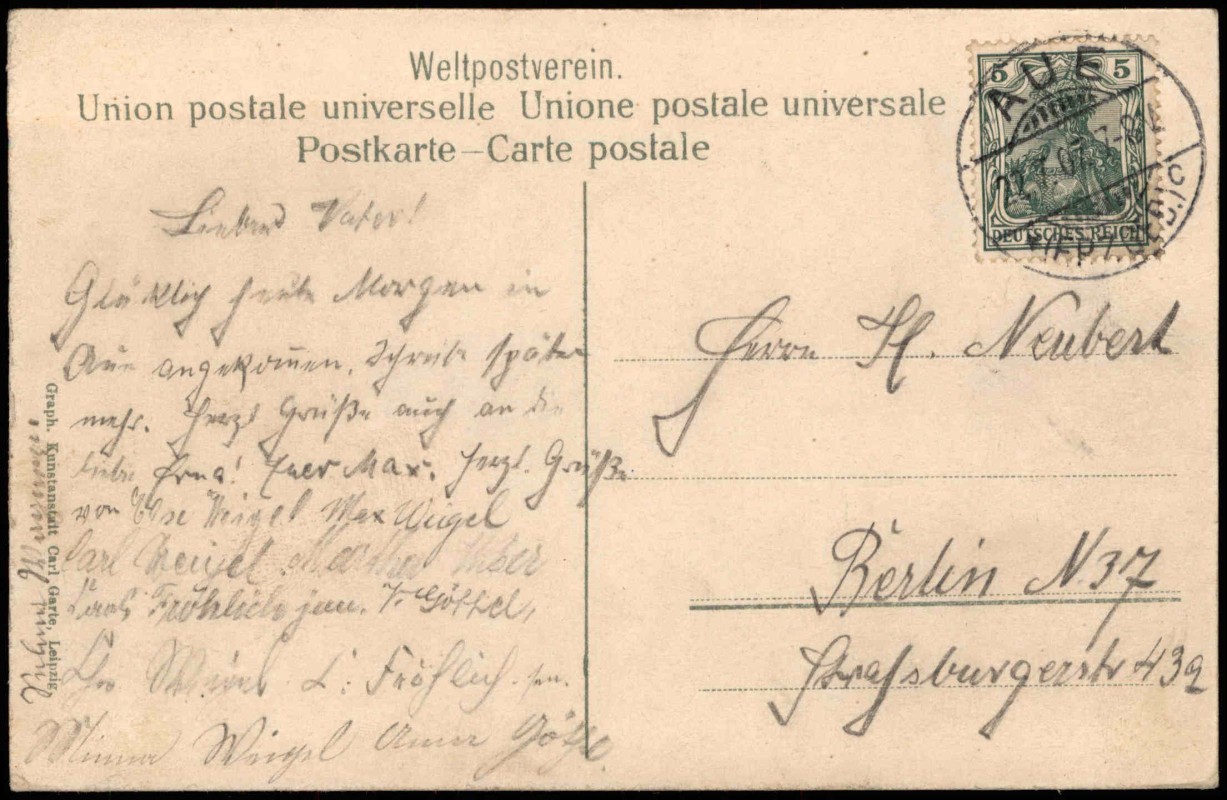 Weltpostverein.
Union postale universelle Unione postale universale
Postkarte – Carte postale
5 5
DEUTSCHES REICH
AUE
27. 07. 7-8V
(ERZGEB.) c
Lieber Vater!
Glücklich heute Morgen in
Aue angekommen. Schreibe später
mehr. Herzl Grüße auch an die
liebe Erna! Euer Max. Herzl. Grüße
von Else Weigel Max Weigel
Carl Weigel. Martha
Fröhlich jun. Göthel,
L. Fröhlich sen.
Minna Weigel Anna Göthel
Herrn H. Neubert
Berlin N. 37
Strassburgerstr 43a
Graph. Kunstanstalt Carl Garte, Leipzig,